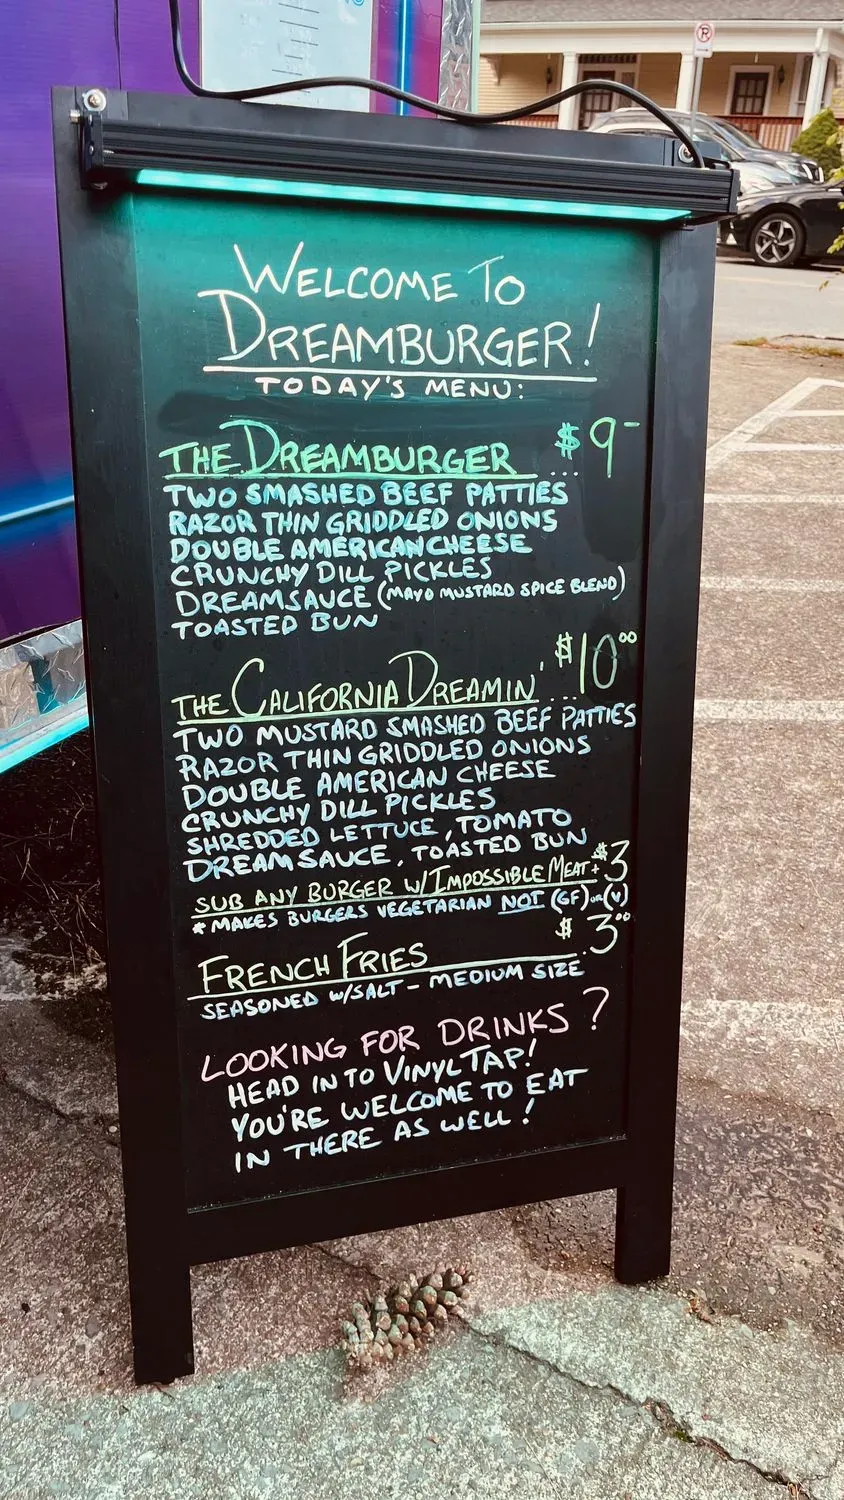 WELCOME TO
DREAMBURGER!
TODAY'S MENU:
THE DREAMBURGER ... $9-
TWO SMASHED BEEF PATTIES
RAZOR THIN GRIDDLED ONIONS
DOUBLE AMERICAN CHEESE
CRUNCHY DILL PICKLES
DREAMSAUCE (MAYO MUSTARD SPICE BLEND)
TOASTED BUN
THE CALIFORNIA DREAMIN' ... $10.00
TWO MUSTARD SMASHED BEEF PATTIES
RAZOR THIN GRIDDLED ONIONS
DOUBLE AMERICAN CHEESE
CRUNCHY DILL PICKLES
SHREDDED LETTUCE, TOMATO
DREAMSAUCE, TOASTED BUN
SUB ANY BURGER W/IMPOSSIBLE MEAT + $3
* MAKES BURGERS VEGETARIAN NOT (GF) or (V)
FRENCH FRIES $3.00
SEASONED W/SALT - MEDIUM SIZE
LOOKING FOR DRINKS?
HEAD INTO VINYL TAP!
YOU'RE WELCOME TO EAT
IN THERE AS WELL!